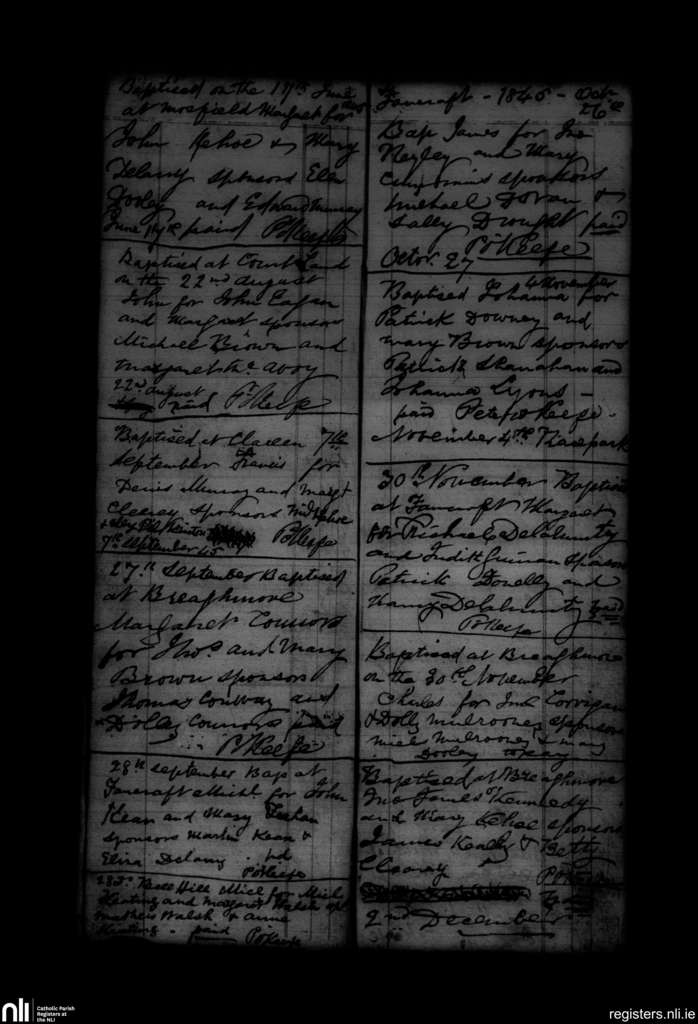 Baptised on the 19th June
at Mosfield Margaret for
John Kehoe & Mary
Delany sponsors Ellen
Dooley and Edward Murray
June 19th paid P O'Keefe
Baptised at Court Land
on the 22nd August
John for John Eagan
and Margaret sponsors
Michael Brown and
Margaret Mc avoy
22nd August
paid P O'Keefe
Baptised at Clareen 7th
September Francis for
Denis Murray and Margt
Cleeray sponsors
7th September 45 P O'Keefe
27th September Baptised
at Breaghmore
Margaret Connors
for Thos and Mary
Brown sponsors
Thomas Conway and
Dolly Connors paid
P O'Keefe
28th September Bap at
Fancroft for John
Kean and Mary
sponsors Martin Kean &
Eliza Delany pd
P O'Keefe
28th Bell Hill Micl for Michl
Keating and Margaret Walsh
Mathew Walsh & Anne
Keating paid P O'Keefe
Fancroft - 1845 - Octr
26th
Bap James for Jno
Negley and Mary
sponsors
Michael Doran &
Sally Drought paid
P O'Keefe
Octor. 27
4 November
Baptised Johanna for
Patrick Downey and
Mary Brown sponsors
Patrick Shanahan and
Johanna Lyons -
paid Peter O Keefe.
November 4th Thorepark
30th November Baptised
at Fancroft Margaret
for Michael Delahunty
and Judith Guinan sponsors
Patrick Donelly and
Nancy Delahunty paid
P O'Keefe
Baptised at Breaghmore
on the 30th November
Charles for Jno Corrigan
& Dolly Mulrooney sponsors
Micl Mulrooney & Mary
Dooley to pay
Baptised at Breaghmore
Jno James Kennedy
and Mary Kehoe sponsors
James Keally & Betty
Cleeray P O'Keefe
2nd December
nli Catholic Parish
Registers at
the NLI
registers.nli.ie